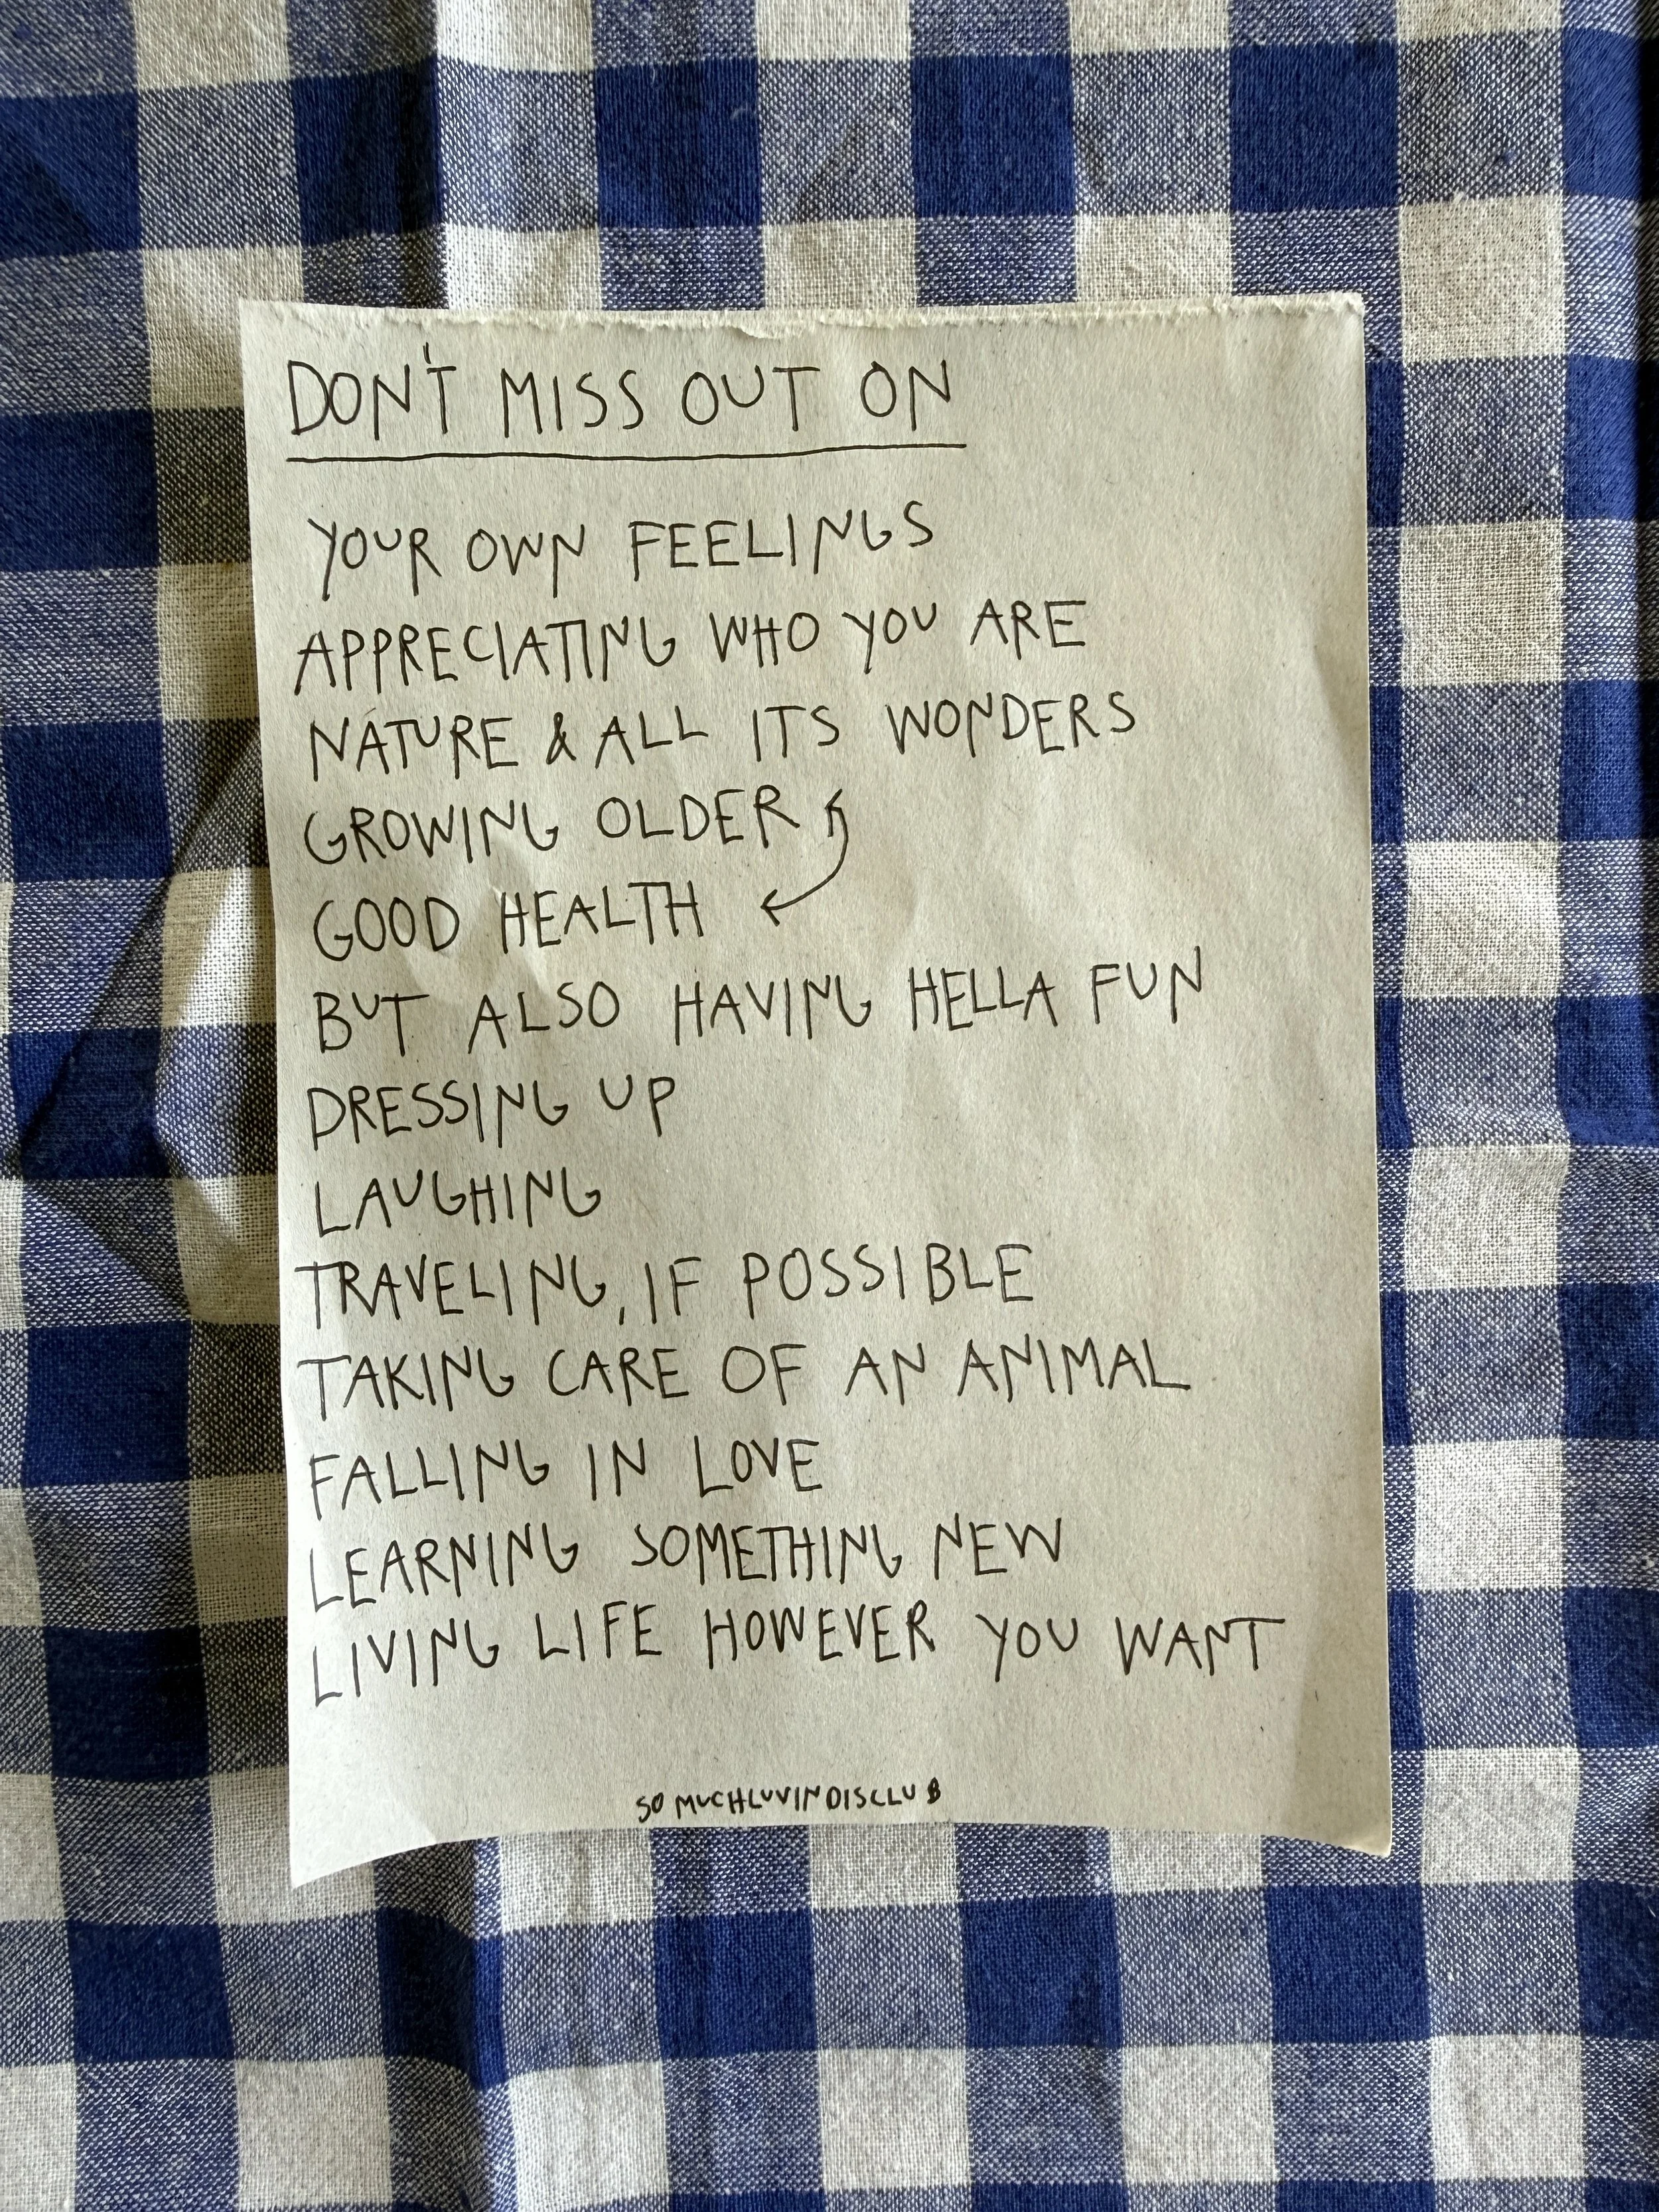 DON'T MISS OUT ON
YOUR OWN FEELINGS
APPRECIATING WHO YOU ARE
NATURE & ALL ITS WONDERS
GROWING OLDER
GOOD HEALTH
BUT ALSO HAVING HELLA FUN
DRESSING UP
LAUGHING
TRAVELING, IF POSSIBLE
TAKING CARE OF AN ANIMAL
FALLING IN LOVE
LEARNING SOMETHING NEW
LIVING LIFE HOWEVER YOU WANT
SOMUCHLUVINDISCLUB